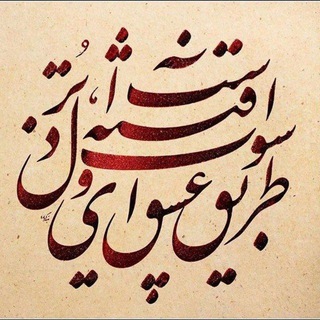 طریق عشق پرآشوب و فتنه است ای دل